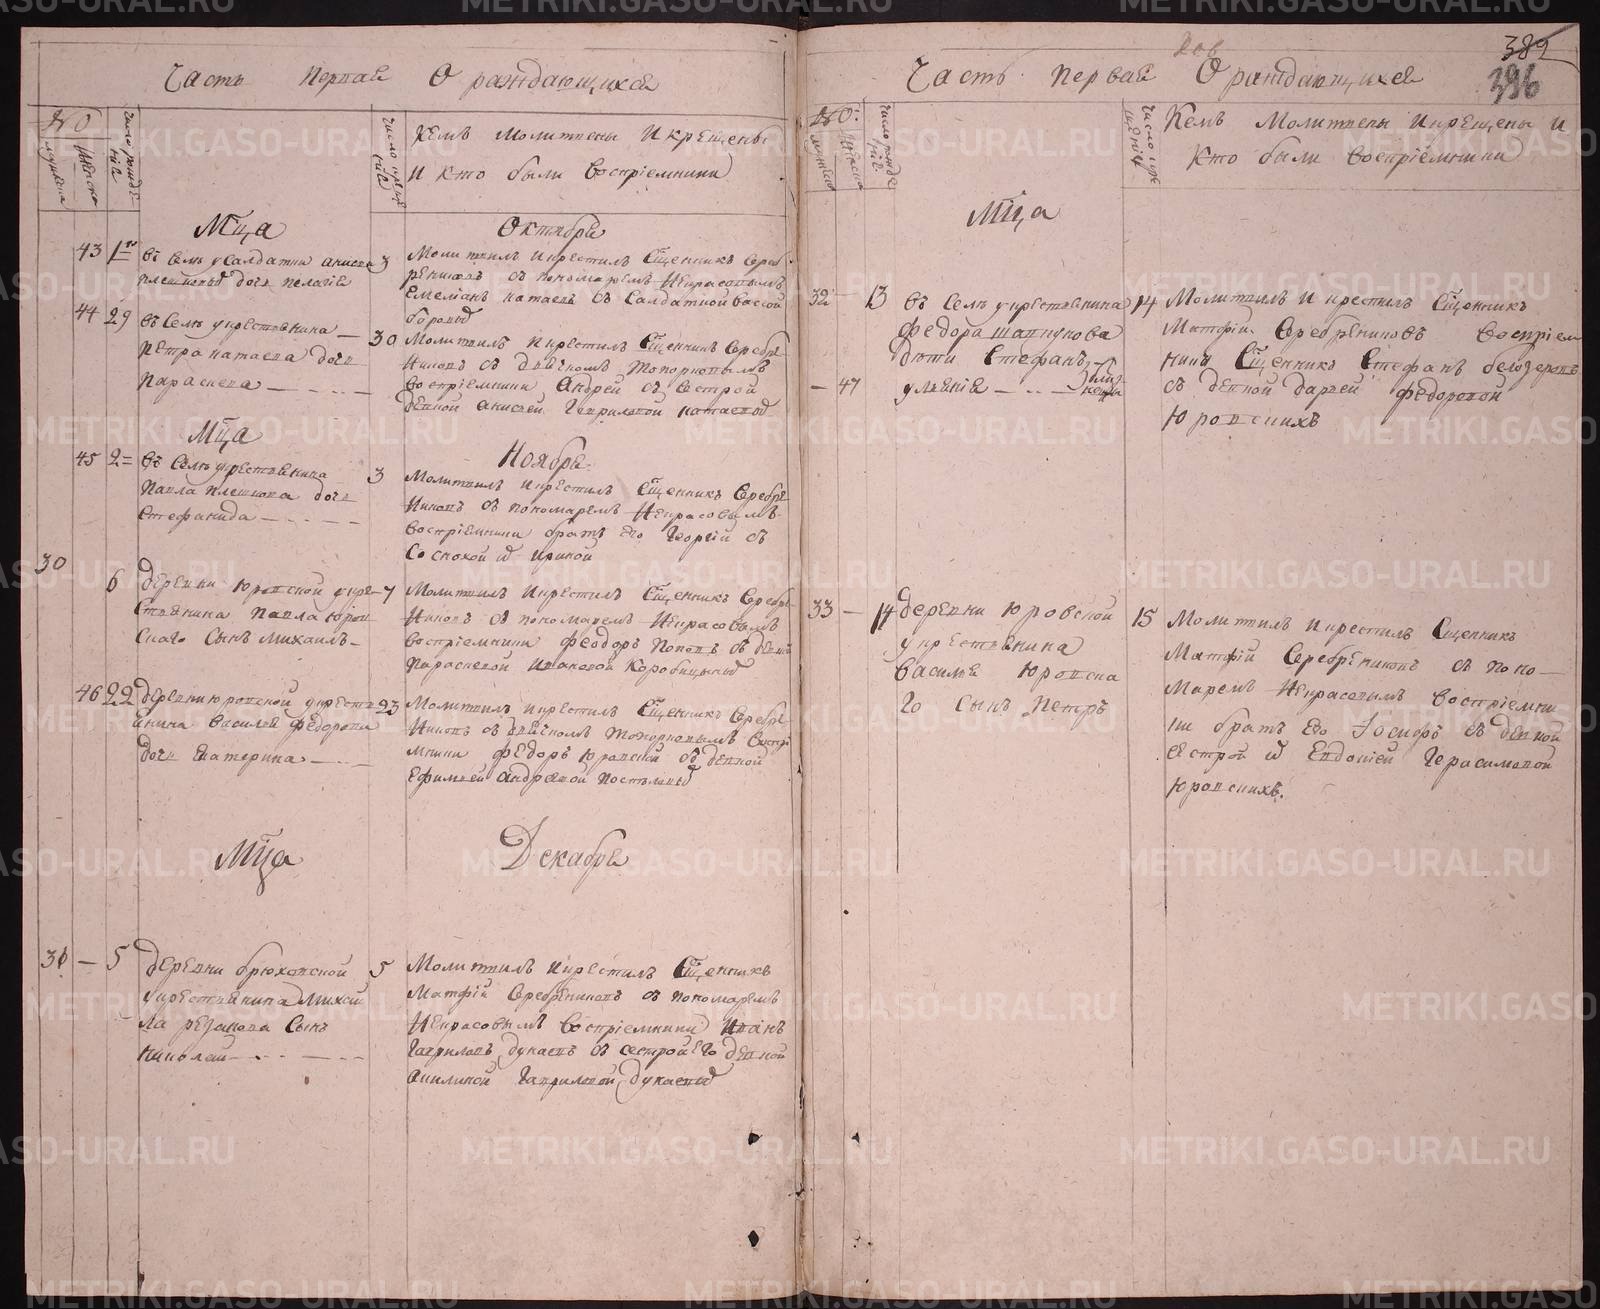 Часть первая О раждающихся
№
мужеска
женска
число рожде
нія
число креще
нія
Кемъ молитвены и крещены
и кто были воспріемники
Мца Октября
43 1го въ селѣ у салдатки анисьи
плешковы дочь пелагія
3 Молитвилъ и крестилъ Сщенникъ Сереб
рениковъ съ пономаремъ Некрасовымъ
Емеліанъ катаевъ съ Салдаткой вассой
44 29 въ селѣ у крестьянина
петра катаева дочь
параскева
30 Молитвилъ и крестилъ Сщенникъ Серебре
никовъ съ дьячкомъ Топорковымъ
воспріемники Андрей съ сестрой
девкой анисьей Гавриловой катаевы
Мца Ноября
45 2 въ селѣ у крестьянина
павла плешкова дочь
Стефанида
3 Молитвилъ и крестилъ Сщенникъ Серебре
никовъ съ пономаремъ Некрасовымъ
воспріемники братъ его Георгій съ
снохой ириной
30 6 деревни Юровской у кре
стьянина Павла Юров
скаго сынъ михаилъ
7 Молитвилъ и крестилъ Сщенникъ Серебре
никовъ съ пономаремъ Некрасовымъ
воспріемники феодоръ Поповъ съ девкой
Параскевой Ивановой Коробицыны
46 22 деревни юровской у кресть
янина василья федорова
дочь Екатерина
23 Молитвилъ и крестилъ Сщенникъ Серебре
никовъ съ дьячкомъ Топорковымъ воспріе
мники федоръ Юровской съ девкой
Ефимьей андреевой
Мца Декабря
31 5 деревни брюховской
у крестьянина Михай
ла резанова сынъ
николай
5 Молитвилъ и крестилъ Сщенникъ
Матфій Серебрениковъ съ пономаремъ
Некрасовымъ воспріемники Иванъ
Гавриловъ дукаевъ съ сестрой его девкой
Акилиной Гавриловой дукаевы
206
389
396
Часть первая О раждающихся
№
мужеска
женска
число рожде
нія
число кре
щенія
Кемъ Молитвены и крещены и
кто были воспріемники
Мца
32 13 въ селѣ у крестьянина
федора шапкунова
дѣти Стефанъ
47 ульянія близ
нецы
14 Молитвилъ и крестилъ Сщенникъ
Матфій Серебрениковъ воспріем
никъ Сщенникъ Стефанъ белозеровъ
съ девкой дарьей федоровой
Юровскихъ
33 14 деревни юровской
у крестьянина
Василья Юровска
го сынъ Петръ
15 Молитвилъ и крестилъ Сщенникъ
Матфій Серебрениковъ съ поно
маремъ Некрасовымъ воспріемни
ки братъ его Іосифъ съ девкой
сестрой Евдокіей Герасимовой
Юровскихъ.